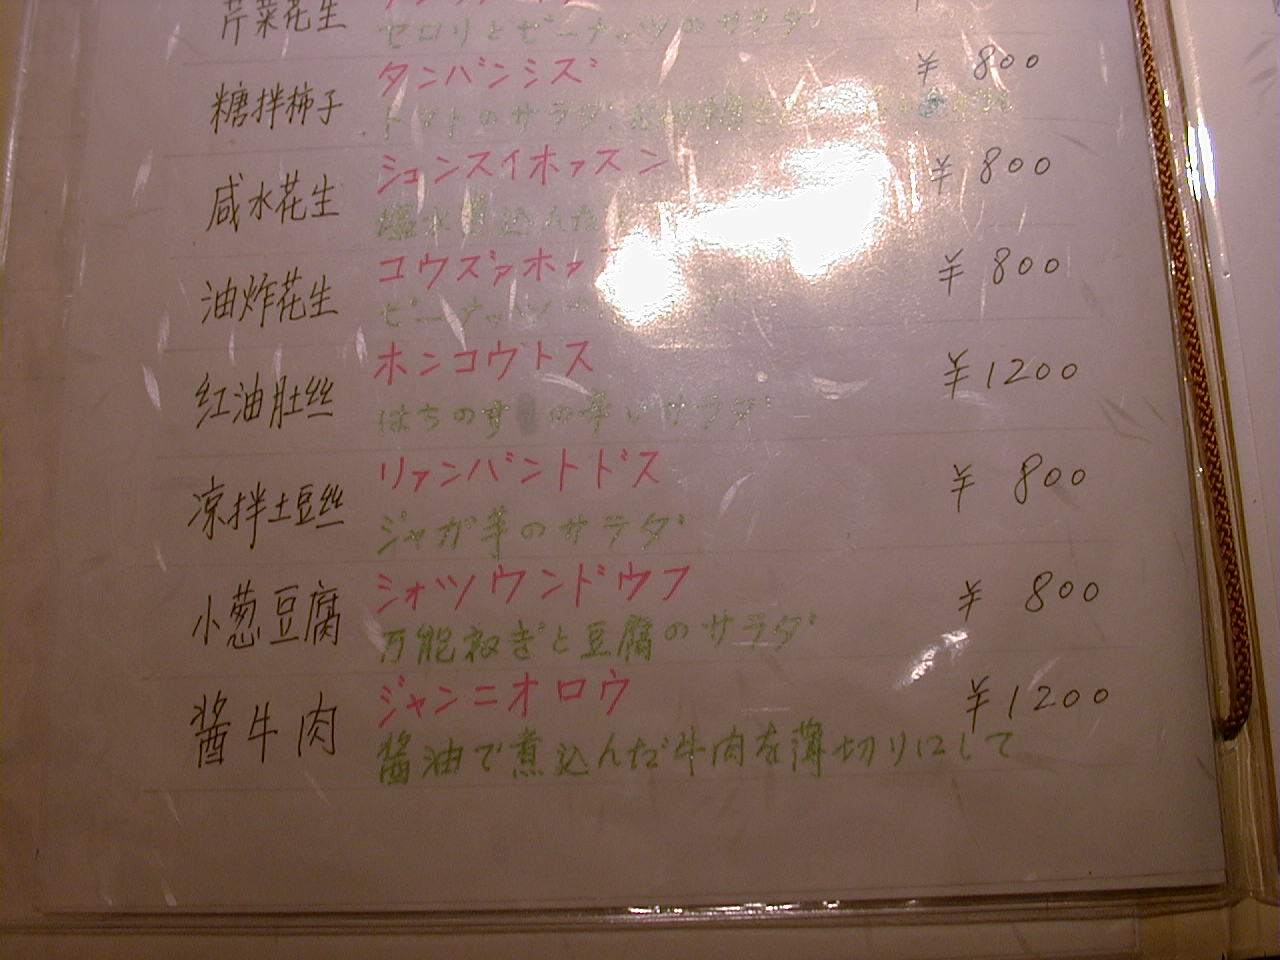 芹菜花生
セロリとピーナッツのサラダ
糖拌柿子 タンバンシズ ¥800
トマトのサラダ
咸水花生 ションスイホァスン ¥800
塩水煮込んだ
油炸花生 ユウズァホァ ¥800
ピーナッツ
红油肚丝 ホンユウトス ¥1200
はちのすの辛いサラダ
凉拌土豆丝 リァンバントドス ¥800
ジャガ芋のサラダ
小葱豆腐 シォツウンドウフ ¥800
万能ねぎと豆腐のサラダ
酱牛肉 ジャンニオロウ ¥1200
醤油で煮込んだ牛肉を薄切りにして